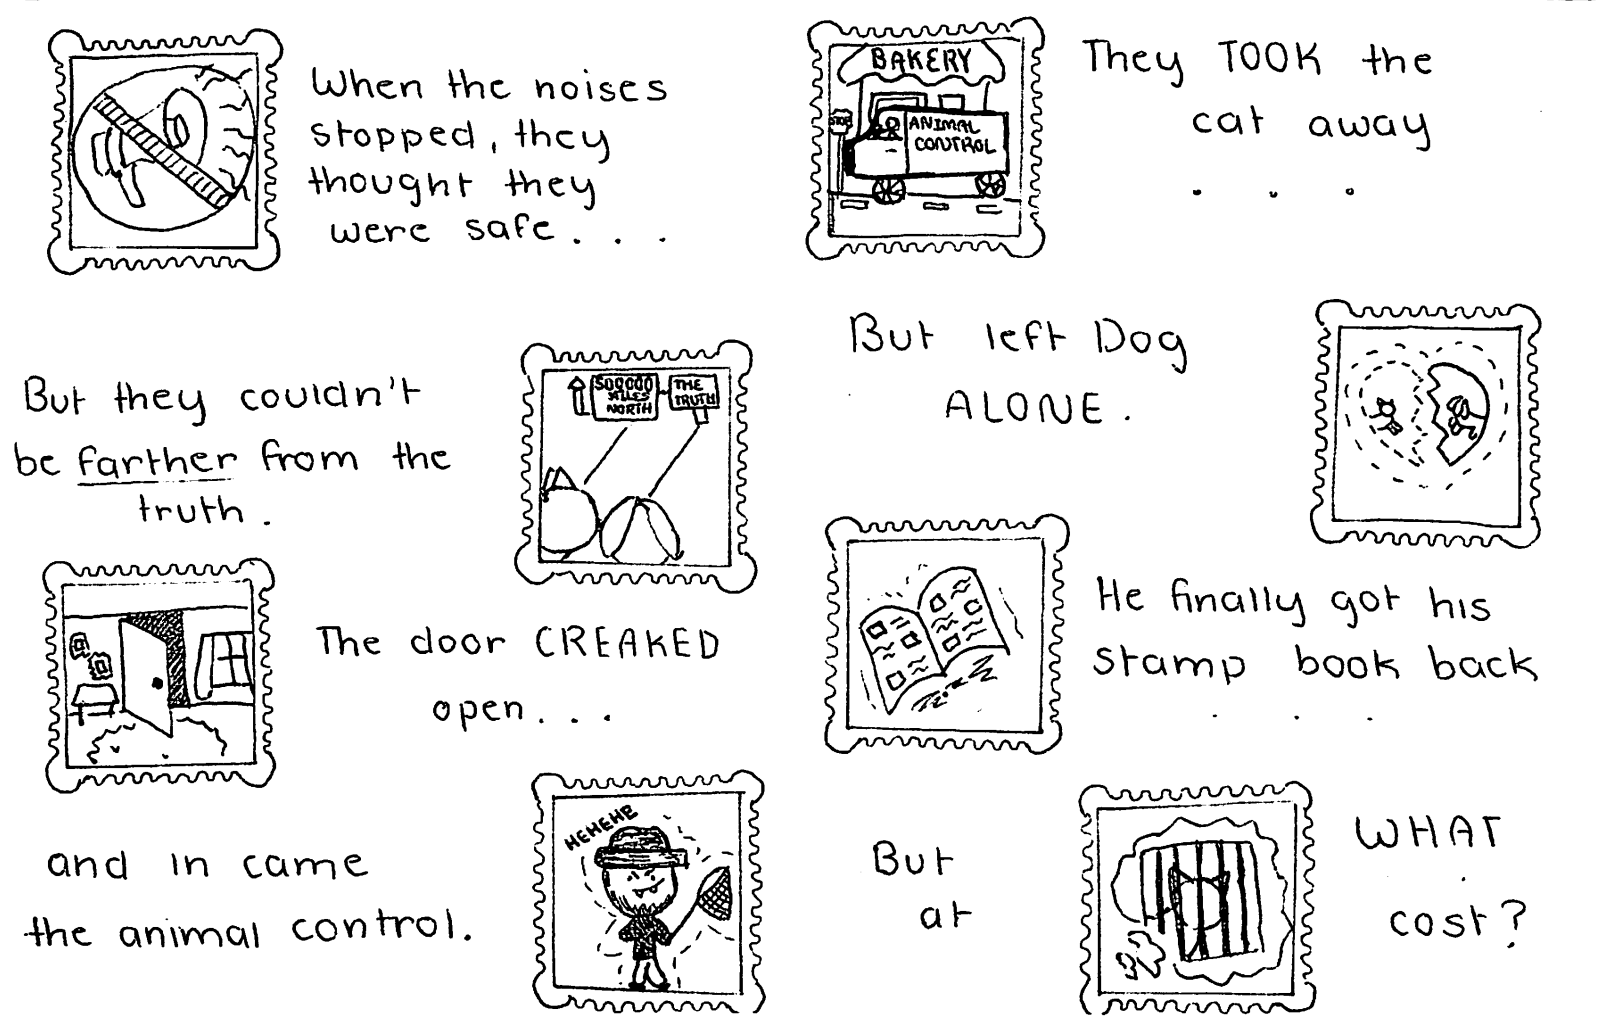 When the noises
stopped, they
thought they
were safe...
But they couldn't
be farther from the
truth.
500000
MILES
NORTH
THE
TRUTH
The door CREAKED
open...
and in came
the animal control.
HEHEHE
BAKERY
STOP
ANIMAL
CONTROL
They TOOK the
cat away
...
But left Dog
ALONE.
He finally got his
stamp book back
...
But
at
WHAT
cost?